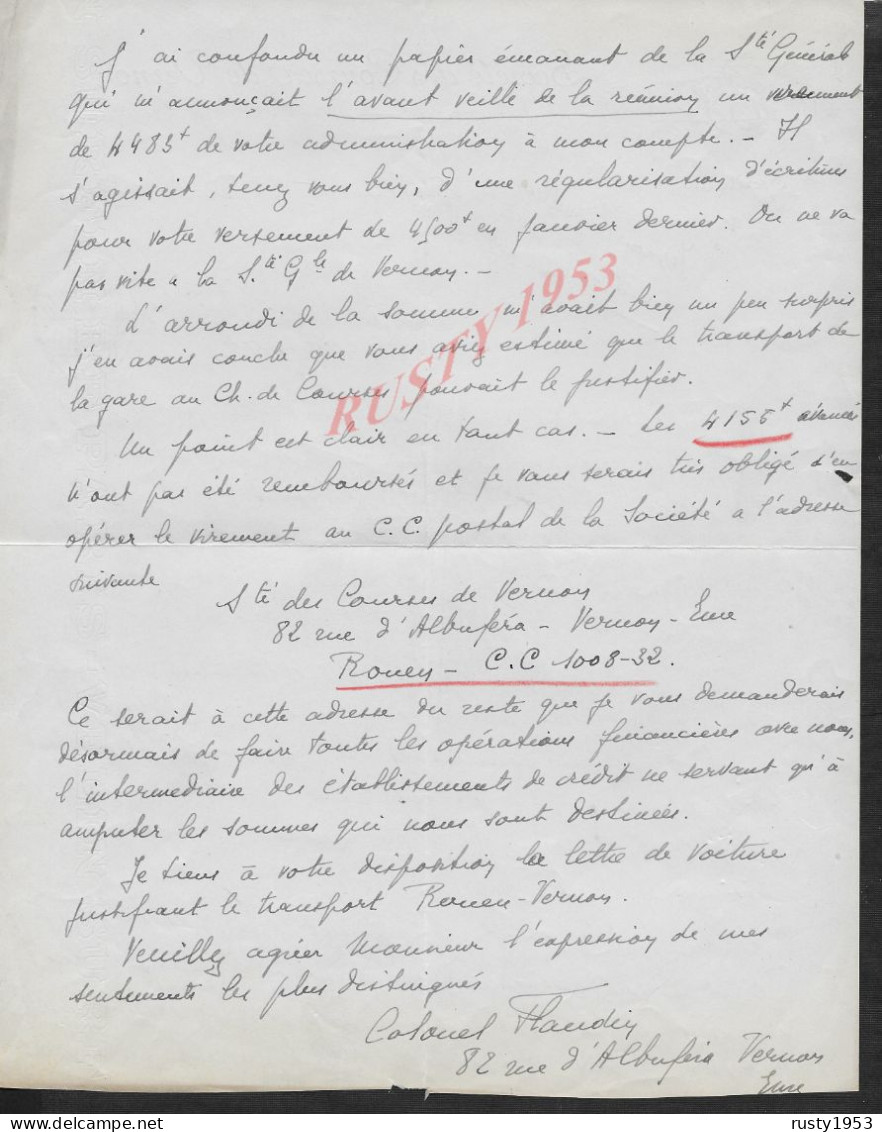 J'ai confondu un papier émanant de la Sté Générale
qui m'annonçait l'avant veille de la réunion un virement
de 4485f de votre administration à mon compte. - Il
s'agissait, tenez vous bien, d'une régularisation d'écritures
pour votre versement de 4500f en Janvier dernier. On ne va
pas vite a la Sté Gle de Vernon. -
L'arrondi de la somme m'avait bien un peu surpris
j'en avais conclu que vous aviez estimé que le transport de
la gare au Ch. de Courses pouvait le justifier.
Un point est clair en tout cas. - Les 4155f avancés
n'ont pas été remboursés et je vous serais très obligé d'en
opérer le virement au C.C. postal de la Société a l'adresse
suivante
Sté des Courses de Vernon
82 rue d'Albuféra - Vernon - Eure
Rouen - C.C 1008-32.
Ce serait à cette adresse du reste que je vous demanderais
désormais de faire toutes les opérations financières avec nous,
l'intermediaire des établissements de crédit ne servant qu'à
amputer les sommes qui nous sont destinées.
Je tiens à votre disposition la lettre de voiture
justifiant le transport Rouen-Vernon.
Veuillez agréer Monsieur l'expression de mes
sentiments les plus distingués
Colonel Flandin
82 rue d'Albuféra Vernon
Eure
RUSTY 1953
rusty1953